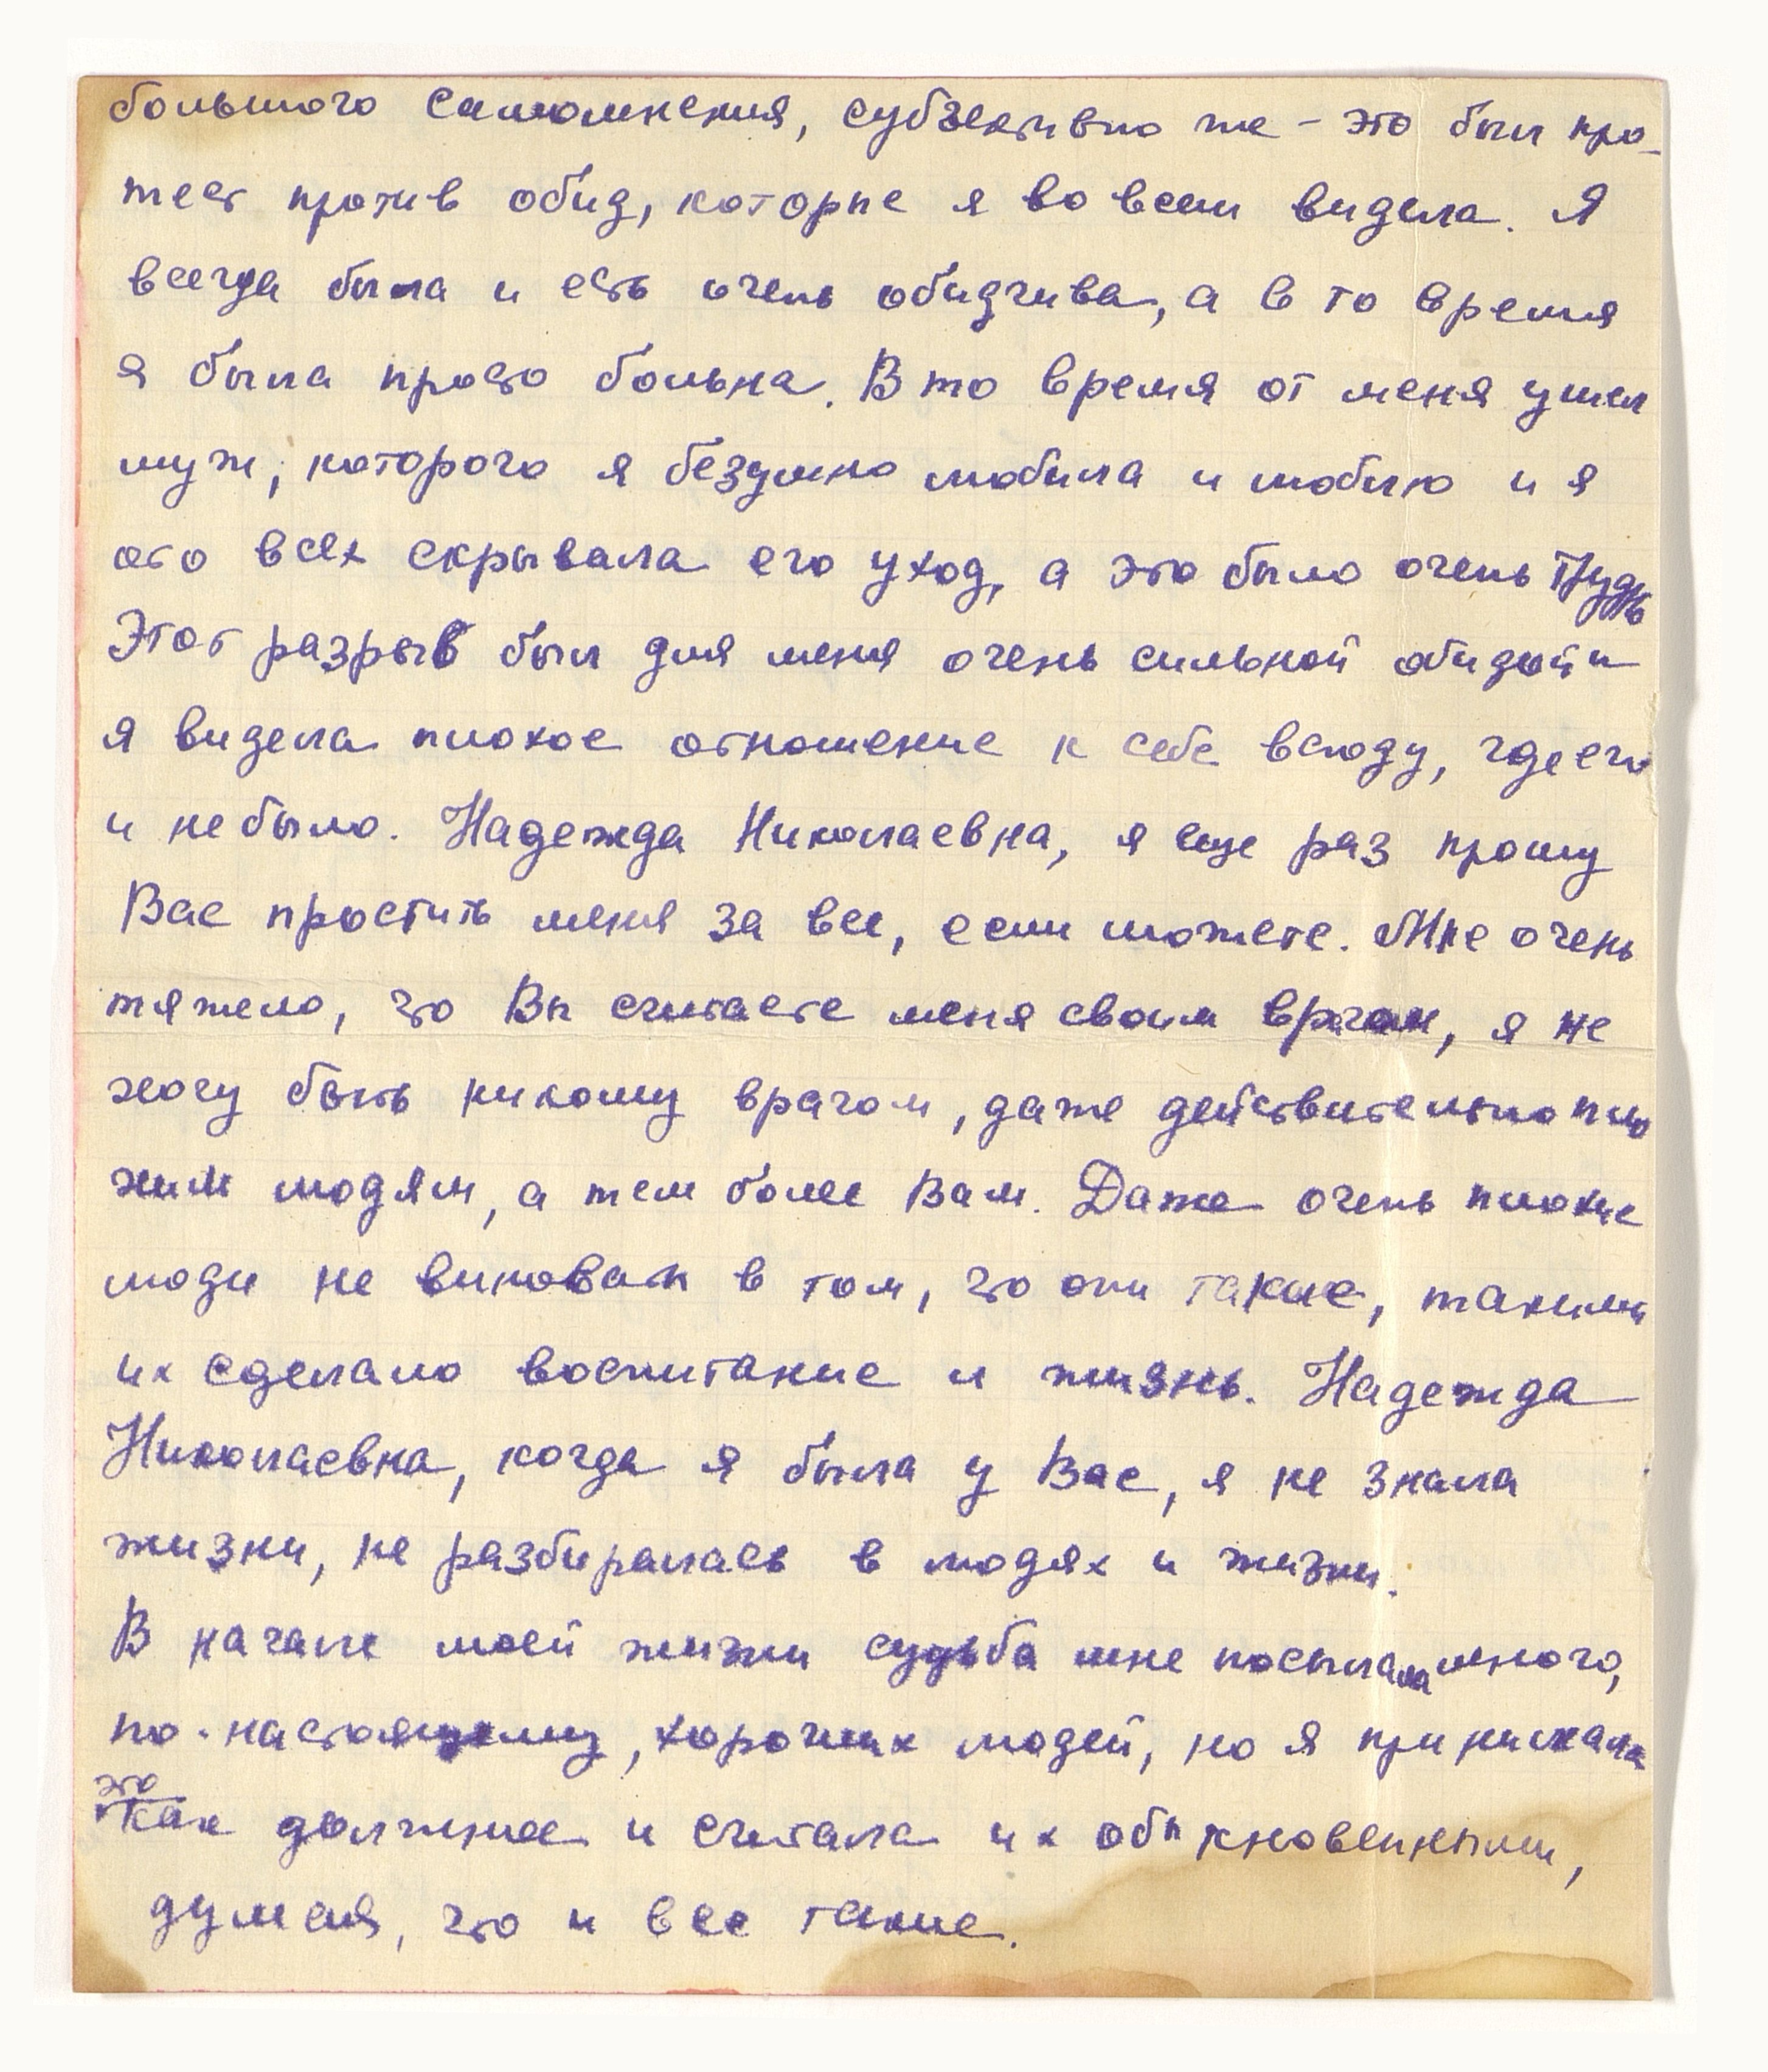 большого самомнения, субъективно же – это был про-
тест против обид, которые я во всем видела. Я
всегда была и есть очень обидчива, а в то время
я была просто больна. В то время от меня ушел
муж, которого я безумно любила и люблю и я
ото всех скрывала его уход, а это было очень
Этот разрыв был для меня очень сильной обидой и
я видела плохое отношение к себе всюду, где его
и не было. Надежда Николаевна, я еще раз прошу
Вас простить меня за все, если можете. Мне очень
тяжело, что Вы считаете меня своим врагом, я не
хочу быть никому врагом, даже действительно пло
хим людям, а тем более Вам. Даже очень плохие
люди не виноваты в том, что они такие, такими
их сделало воспитание и жизнь. Надежда
Николаевна, когда я была у Вас, я не знала
жизни, не разбиралась в людях и жизни.
В начале моей жизни судьба мне посылала много,
по-настоящему, хороших людей, но я принимала
это
как должное и считала их обыкновенными,
думая, что и все такие.